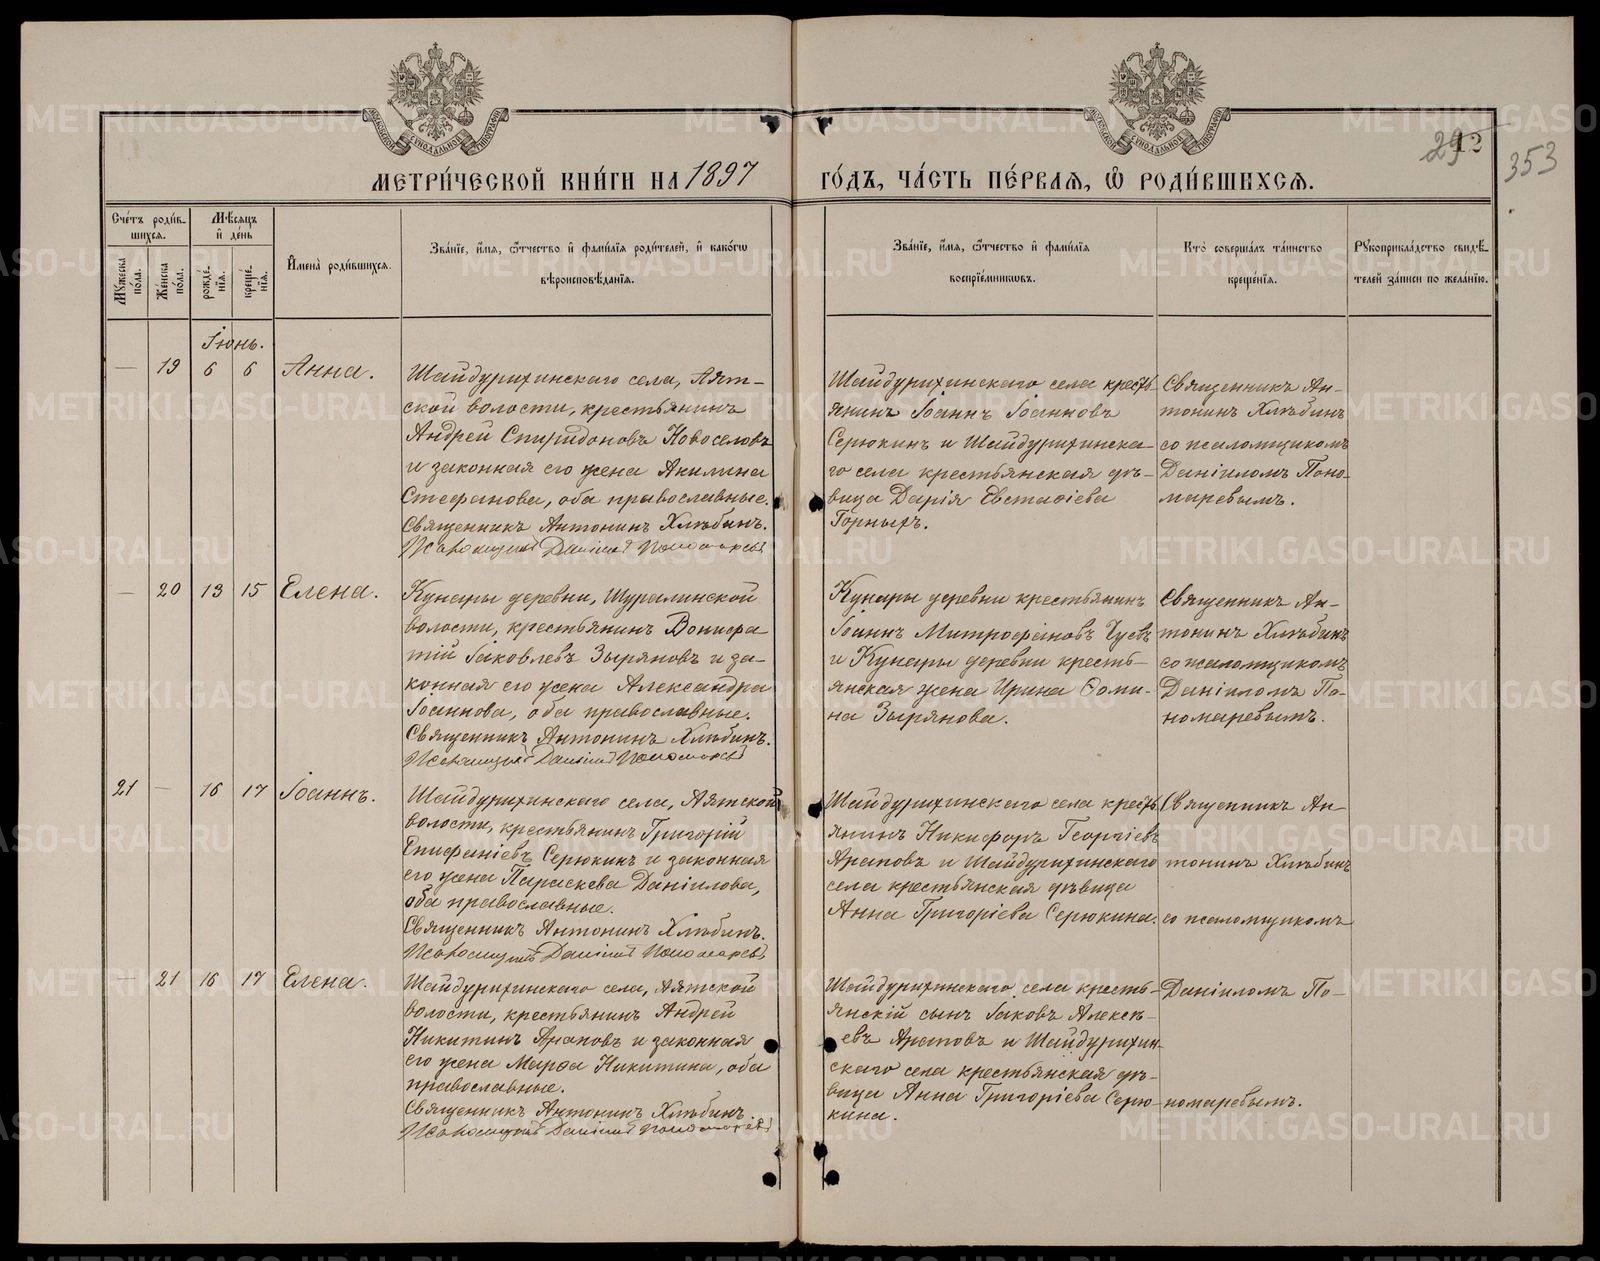 МЕТРИ́ЧЕСКОЙ КНИ́ГИ НА 1897
ГО́ДЪ, ЧА́СТЬ ПЕ́РВАЯ, Ѡ РОДИ́ВШИХСЯ.
29 12
353
Сче́тъ роди́в-
шихся.
Му́жеска по́ла.
Же́нска по́ла.
Мѣ́сяцъ
и де́нь
рожде́нія.
креще́нія.
Имена̀ роди́вшихся.
Зва́нїе, и́мя, ѻ́тчество и фами́лїя роди́телей, и како́гѡ
вѣроисповѣ́данїя.
Зва́нїе, и́мя, ѻ́тчество и фами́лїя
воспрїе́мниковъ.
Кто̀ соверша́лъ та́инство
креще́нїя.
Рꙋкоприкла́дство свидѣ́-
телей за́писи по жела́нїю.
Іюнь.
— 19 6 6 Анна.
Шайдурихинскаго села, Аят-
ской волости, крестьянинъ
Андрей Спиридоновъ Новоселовъ
и законная его жена Акилина
Стефанова, оба православные.
Священникъ Антонинъ Хлѣбинъ.
Псаломщикъ Даніилъ Пономаревъ
Шайдурихинскаго села кресть-
янинъ Іоаннъ Іоанновъ
Серюкинъ и Шайдурихинска-
го села крестьянская дѣ-
вица Дарія Евстаѳіева
Горныхъ.
Священникъ Ан-
тонинъ Хлѣбинъ
со псаломщикомъ
Даніиломъ Поно-
маревымъ.
— 20 13 15 Елена.
Кунары деревни, Шуралинской
волости, крестьянинъ Вонифа-
тій Іаковлевъ Зыряновъ и за-
конная его жена Александра
Іоаннова, оба православные.
Священникъ Антонинъ Хлѣбинъ.
Псаломщикъ Даніилъ Пономаревъ
Кунары деревни крестьянинъ
Іоаннъ Митрофановъ Гусевъ
и Кунары деревни кресть-
янская жена Ирина Ѳоми-
на Зырянова.
Священникъ Ан-
тонинъ Хлѣбинъ
со псаломщикомъ
Даніиломъ По-
номаревымъ.
21 — 16 17 Іоаннъ.
Шайдурихинскаго села, Аятской
волости, крестьянинъ Григорій
Епифаніевъ Серюкинъ и законная
его жена Параскева Даніилова,
оба православные.
Священникъ Антонинъ Хлѣбинъ.
Псаломщикъ Даніилъ Пономаревъ
Шайдурихинскаго села кресть-
янинъ Никифоръ Георгіевъ
Араповъ и Шайдурихинскаго
села крестьянская дѣвица
Анна Григоріева Серюкина.
Священникъ Ан-
тонинъ Хлѣбинъ
со псаломщикомъ
— 21 16 17 Елена.
Шайдурихинскаго села, Аятской
волости, крестьянинъ Андрей
Никитинъ Араповъ и законная
его жена Марѳа Никитина, оба
православные.
Священникъ Антонинъ Хлѣбинъ.
Псаломщикъ Даніилъ Пономаревъ
Шайдурихинскаго села кресть-
янскій сынъ Іаковъ Алексѣ-
евъ Араповъ и Шайдурихин-
скаго села крестьянская дѣ-
вица Анна Григоріева Серю-
кина.
Даніиломъ По-
номаревымъ.
METRIKI.GASO-URAL.RU